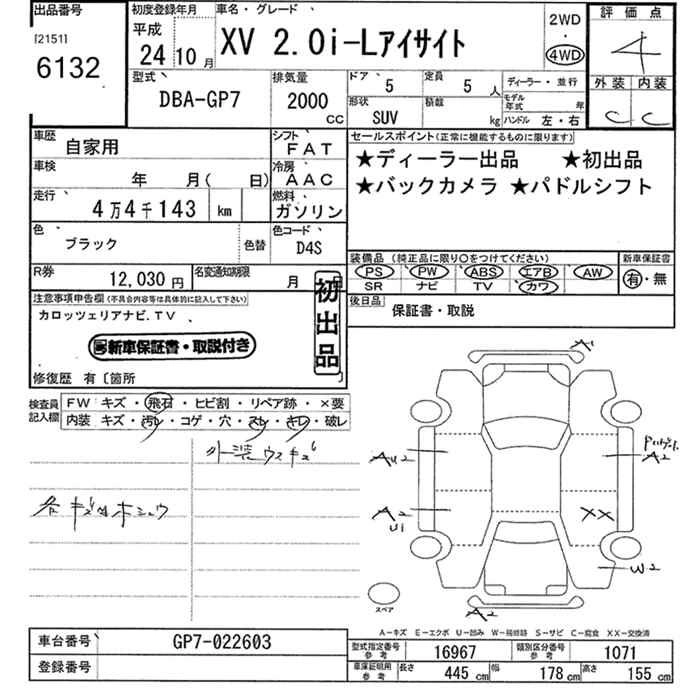 出品番号 初度登録年月 車名・グレード 2WD 評価点
[2151] 平成 XV 2.0i-Lアイサイト ・
6132 24 10月 4WD 4
型式 排気量 ドア 5 定員 5人 ディーラー・並行 外装 内装
DBA-GP7 2000cc 形状 SUV 積載 kg モデル年式 年 C C
ハンドル 左・右
車歴 自家用 シフト FAT セールスポイント(正常に機能するものに限ります)
車検 年 月( 日) 冷房 AAC ★ディーラー出品 ★初出品
走行 4万4千143 km 燃料 ガソリン ★バックカメラ ★パドルシフト
色 ブラック 色替 色コード D4S
装備品(純正品に限り〇をつけてください) 新車保証書
R券 12,030円 名変通知期限 月 PS PW ABS エアB AW 有・無
SR ナビ TV カワ
注意事項申告欄(不具合内容等は具体的に記入して下さい) 初出品 後日品 保証書・取説
カロッツェリアナビ.TV
新車保証書・取説付き
修復歴 有〔箇所
検査員記入欄 FW キズ・飛石・ヒビ割・リペア跡・×要
内装 キズ・汚レ・コゲ・穴・スレ・キレ・破レ
外装ウスキズ
各キズ
ホシュウ
A
AU2 A2
A2 XX
U1
W2
スペア A2
A-キズ E-エクボ U-凹み W-補修跡 S-サビ C-腐食 XX-交換済
車台番号 GP7-022603 型式指定番号 参考 16967 類別区分番号 参考 1071
登録番号 車庫証明用 参考 長さ 445cm 幅 178cm 高さ 155cm